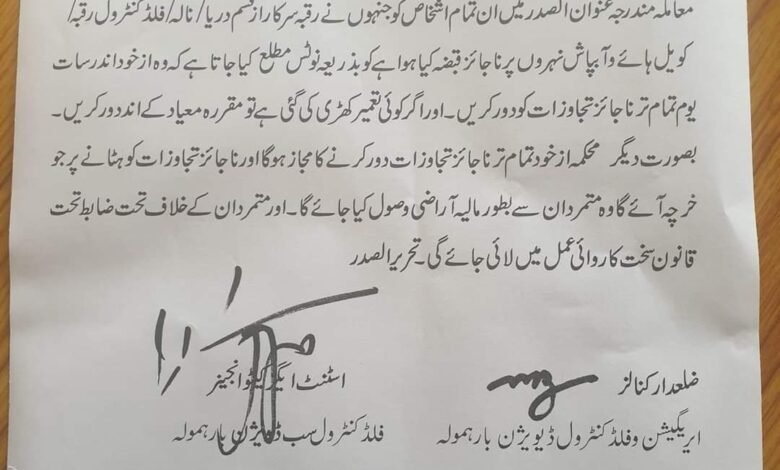 معاملہ مندرجہ عنوان الصدر میں ان تمام اشخاص کو جنہوں نے رقبہ سرکار از قسم دریا/نالہ/فلڈ کنٹرول رقبہ/
کویل ہائے و آبپاش نہروں پر ناجائز قبضہ کیا ہوا ہے کو بذریعہ نوٹس مطلع کیا جاتا ہے کہ وہ از خود اندر سات
یوم تمام تر ناجائز تجاوزات کو دور کریں۔ اور اگر کوئی تعمیر کھڑی کی گئی ہے تو مقررہ معیاد کے اندر دور کریں۔
بصورت دیگر محکمہ از خود تمام تر ناجائز تجاوزات دور کرنے کا مجاز ہوگا اور ناجائز تجاوزات کو ہٹانے پر جو
خرچہ آئے گا وہ متمردان سے بطور مالیہ آراضی وصول کیا جائے گا۔ اور متمردان کے خلاف تحت ضابطہ تحت
قانون سخت کاروائی عمل میں لائی جائے گی۔ تحریر الصدر
ضلعدار کنالز
اریگیشن و فلڈ کنٹرول ڈیویژن بارہمولہ
اسٹنٹ ایگزیکٹو انجینر
فلڈ کنٹرول سب ڈیویژن بارہمولہ